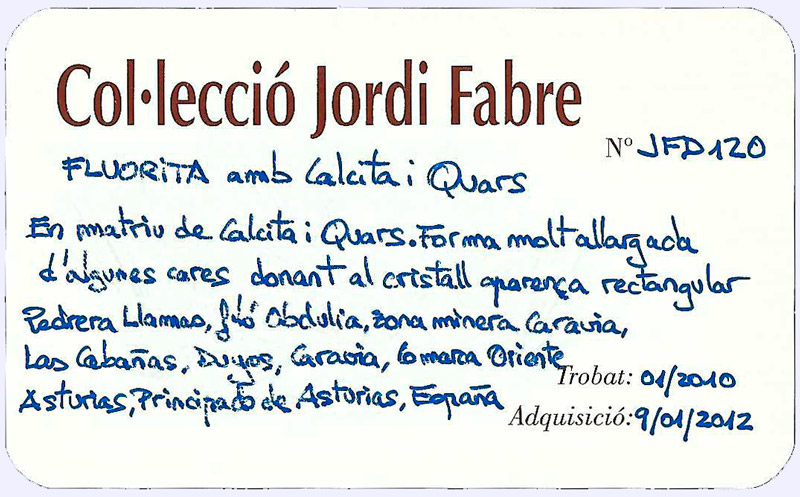 Col·lecció Jordi Fabre
Nº JFD120
FLUORITA amb Calcita i Quars
En matriu de Calcita i Quars. Forma molt allargada
d'algunes cares donant al cristall aparença rectangular
Pedrera Llamas, filó Obdulia, zona minera Caravia,
Las Cabañas, Duyos, Caravia, Comarca Oriente
Trobat: 01/2010
Asturias, Principado de Asturias, España
Adquisició: 9/01/2012